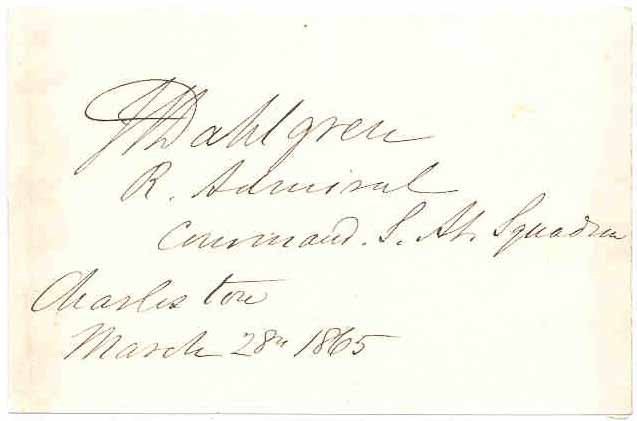 JADahlgren
R. Admiral
Command. S. At. Squadron
Charleston
March 28th 1865